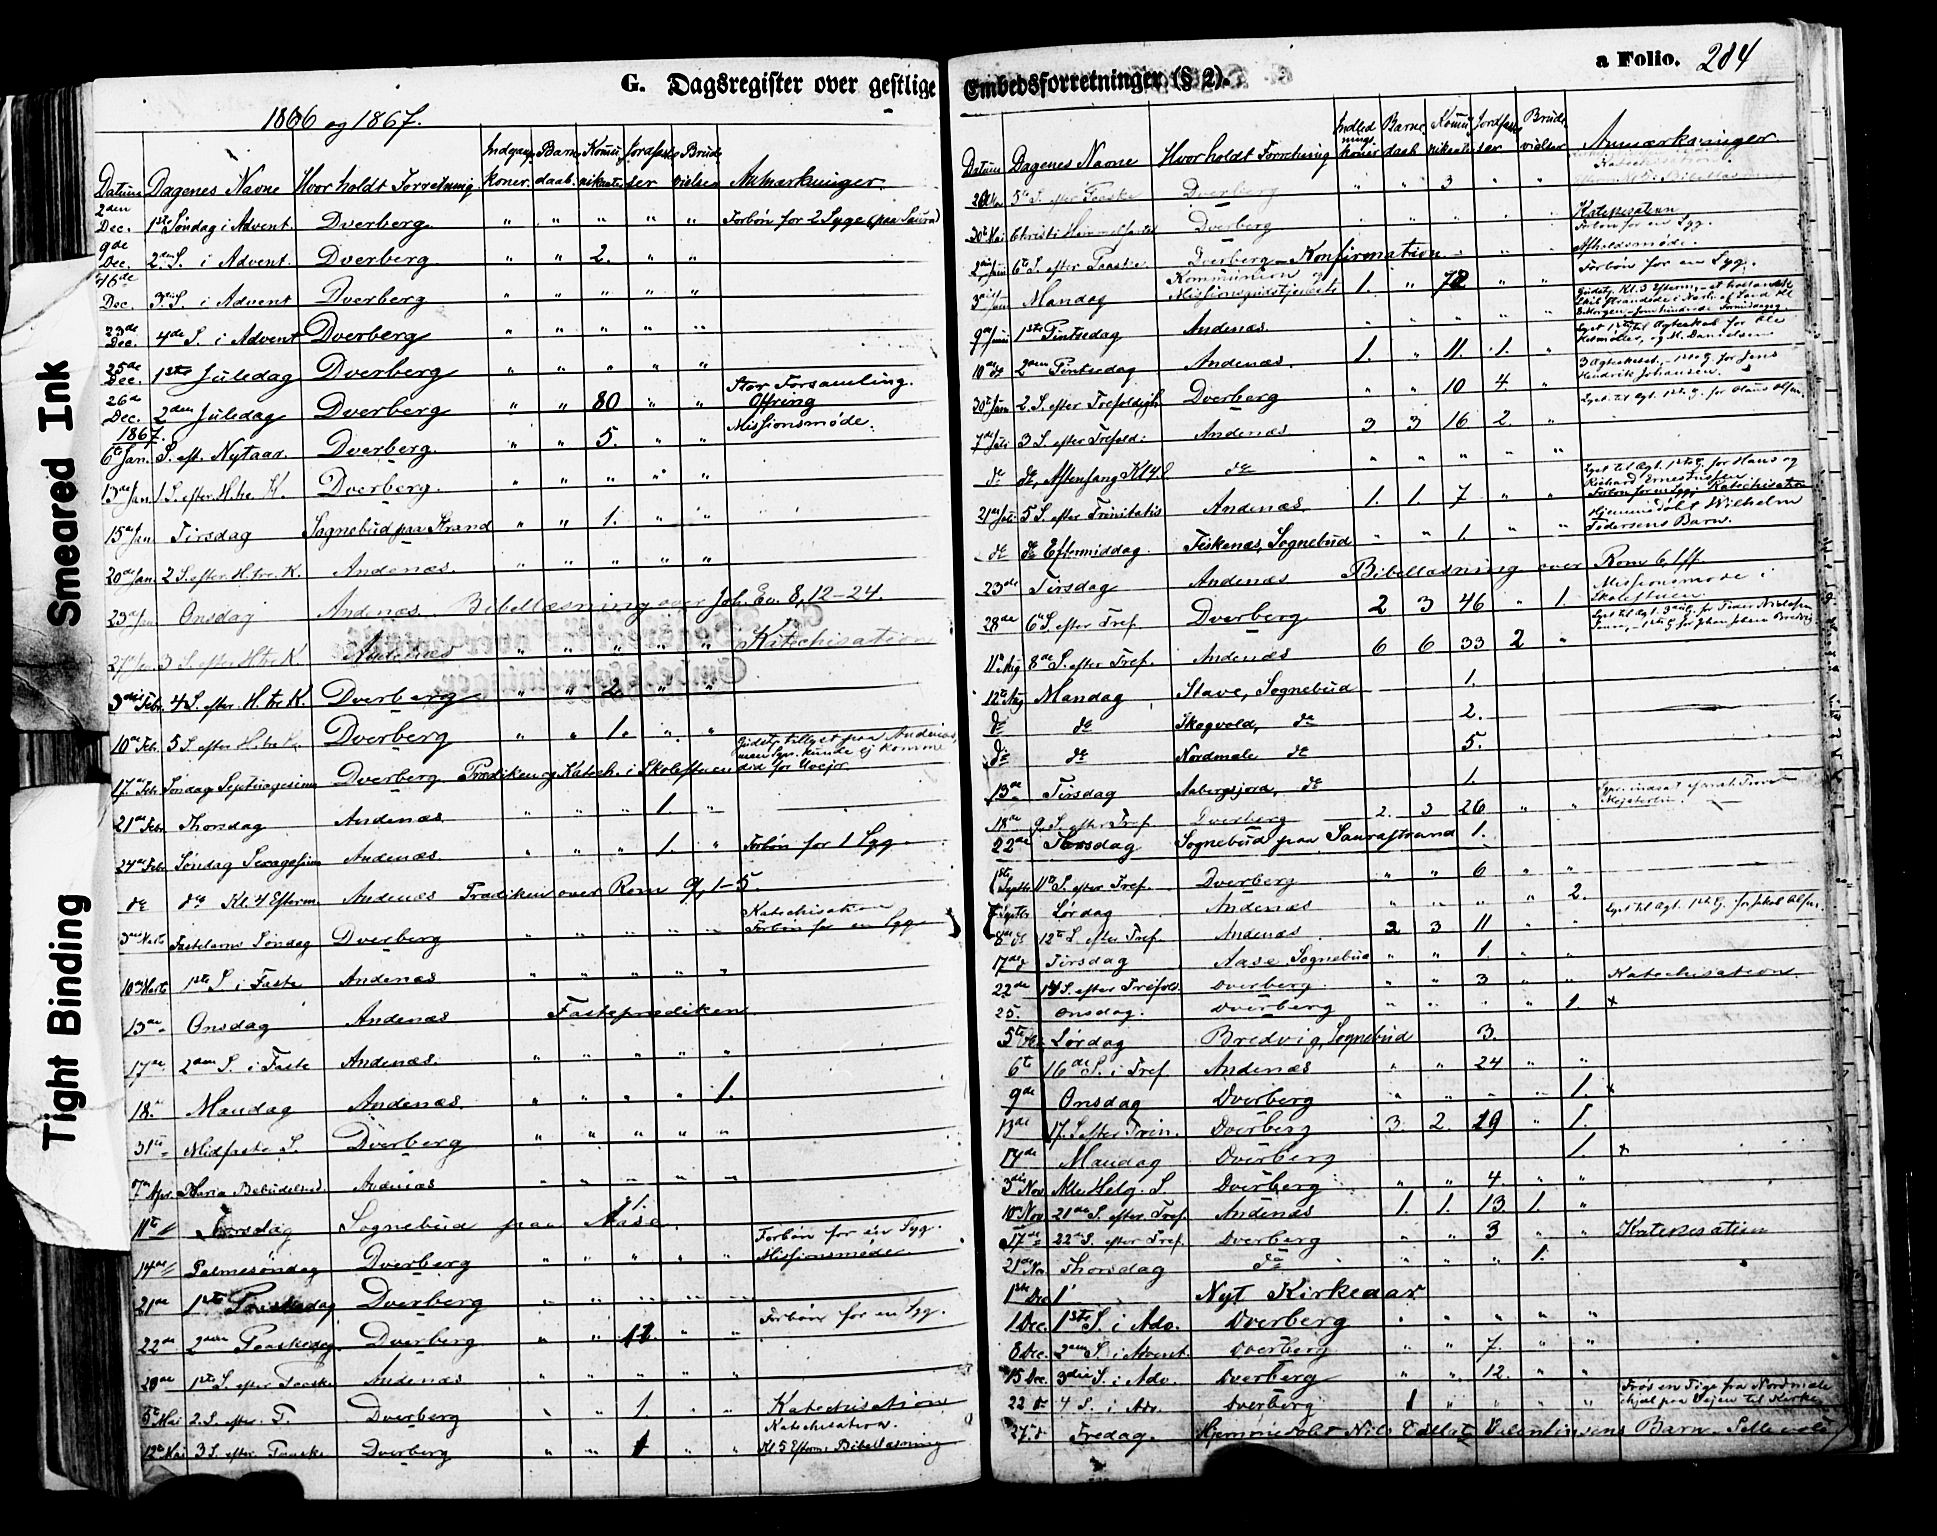 Smeared Ink
Tight Binding
G. Dagsregister over gestlige
1866 og 1867.
Datum Dagenes Navne Hvor holdt Forretning Indgangs koner. Barne daab. Komu nikanter Jordfæstelser Brude vielser Anmærkninger.
2den Dec. 1ste Søndag i Advent. Dverberg. " " " " " Forbøn for 2 Syge (paa Saura)
9de Dec. 2den S. i Advent. Dverberg " " 2. " "
16de Dec. 3die S. i Advent Dverberg " " " " "
23de Dec. 4de S. i Advent Dverberg " " " " "
25de Dec. 1ste Juledag Dverberg " " " " "
26de Dec. 2den Juledag Dverberg " " 80 " " Stor Forsamling. Offring
1867.
6te Jan. S. eft. Nytaar. Dverberg. " " 5. " " Missionsmøde.
13de Jan. 1 S. efter H. tre K. Dverberg. " " " " "
15de Jan. Tirsdag Sognebud paa Strand " " 1. " "
20de Jan. 2 S. efter H. tre K. Andenæs. " " " " "
23de Jan. Onsdag Andenæs. Bibellæsning over Joh. Ev. 8, 12-24.
27de Jan. 3 S. efter H. tre K. Andenæs " " " " " Katechisation
3die Febr. 4 S. efter H. tre K. Dverberg " " 2. " "
10de Feb. 5 S. efter H. tre K. Dverberg " " 1. " " Gudstj. tillyst paa Andenæs, men Spr. kunde ej komme
17de Feb. Søndag Septuagesima Dverberg. Prædiken og Katech. i Skolestuen did for Uvejr.
21de Febr. Thorsdag Andenæs. " " " 1. "
24de Febr. Søndag Sexagesima Andenæs. " " " 1. " Forbøn for 1 Syg.
do do Kl. 4 Efterm. Andenæs Prædiken over Rom 9, 1-5.
3die Marts Fastelavns Søndag Dverberg " " " " " Katechisation Forbøn for en Syg.
10de Marts 1ste S. i Faste Andenæs " " " " "
13de Onsdag Andenæs Fasteprædiken
17de 2den S. i Faste Andenæs. " " " " "
18. Mandag Andenæs. " " " " 1.
31te Midfaste S. Dverberg " " " " "
7de Apr. Maria Bebudelsesd. Andenæs " " " " "
11te " Torsdag Sognebud paa Nase 1.
14de " Palmesøndag Dverberg " " " " " Forbøn for en Syg. Missionsmøde
21de 1ste Paaskedag Dverberg " " " " "
22de 2den Paaskedag Dverberg " " 12 " " Forbøn for en Syg.
28de 1ste S. efter Paaske Andenæs " " " " "
5te Mai 2. S. efter P. Dverberg " " 1. " " Katechisation
12te Mai 3 S. efter Paaske Dverberg " " 1 " " Katechisation. Kl. 5 Efterm. Bibellæsning
Embedsforretninger (§ 2).
a Folio. 284
Datum Dagenes Navne Hvor holdt Forretning Indled nings koner Barne daab Komu nikanter Jordfæstelser Brude vielser Anmærkninger
26 Mai 5te S. efter Paaske Dverberg " " 3 " " Katechisation. Efterm. Kl. 5 Bibellæsning
30te Mai Christi Himmelfartsd. Dverberg " " " " " Katekesation Forbøn for en Syg.
2den Juni 6te S. efter Paaske Dverberg - Konfirmation " " Afholdsmøde.
3die Juni Mandag Kommunion og Missionsgudstjeneste 1. " 72 " " Forbøn for en Syg.
9de Juni 1ste Pintsedag Andenæs. " " " " "
10de do 2den Pintsedag Andenæs. 1. " 11. 1. "
30te Juni 2. S. efter Trefoldigh. Dverberg " " 10 4 " Hendrik Johansen.
7de Juli 3 S. efter Trefold: Andenæs 3 3 16 2. " Lyst til Ægt. 1ste G. for Hans Olsen.
do do, Aftensang Kl 4. do " " " " "
21de Juli 5 S. efter Trinitatis Andenæs 1. 1. 7 " " Lyst til Ægt. 1ste G. for Hans og Richard Ernestussen Forbøn for en Syg. Katechisation
do do Eftermiddag. Fiskenæs, Sognebud " " 1. " " Hjemmedøbt Wilhelm Pedersens Barn.
23de Tirsdag Andenæs Bibellæsning over Rom 6, 1ff.
28de 6te S. efter Tref. Dverberg 2 3 46 " 1. Missionsmøde i Skolestuen.
11te Aug 8de S. efter Tref. Andenæs 6 6 33 2 "
12te Aug Mandag Stave, Sognebud 1.
do do Skogvold, do 2.
do do Nordmele do 5.
13de Tirsdag Aabergsjord, do 1.
18de 9. S. efter Tref. Dverberg 2. 3 26 " "
22de Torsdag Sognebud paa Saurastrand 1.
1ste Septbr 11te S. efter Tref. Dverberg " " 6 " "
7 Septbr Lørdag Andenæs " " " " 2.
8de do 12te S. efter Tref. Andenæs 2 3 11 " " Lyst til Ægt. 1ste G. for Jakob Olsen.
17de do Tirsdag Nase Sognebud " " 1. " "
22de 14 S. efter Trefold. Dverberg. " " 3 " " Katechisation.
25. Onsdag. Dverberg " " " " 1. x
5te Lørdag Bredvig, Sognebud 3.
6te 16de S. i Tref. Andenæs " " 24 " "
9de Onsdag Dverberg " " " " 1. x
13de 17. S. efter Trin. Dverberg 3. 2. 19 " 1.
14de Mandag Dverberg 1. x
3die Nov. Alle Helg. S. Dverberg " " 4. " "
10de Nov. 21de S. efter Tref. Andenæs 1. 1. 13. 1. "
17de 22de S. efter Tref. Dverberg " " 3 " " Katekesation
21de Nov. Thorsdag do " " " 1.
1ste Dec. 1' Nyt Kirkeaar
1 Dec. 1ste S. i Adv. Dverberg " " " " "
8 Dec. 2den S. i Advent. Dverberg " " 7. " "
15 Dec. 3die S. i Adv. Dverberg " " 12. " "
22 do 4 S. i Adv. Dverberg 1 " " " Frøs en Pige fra Nordmele ihjel paa Vejen til Kirke.
27. do Fredag. Hjemmedøbt Nils Edvart Valentinsens Barn.